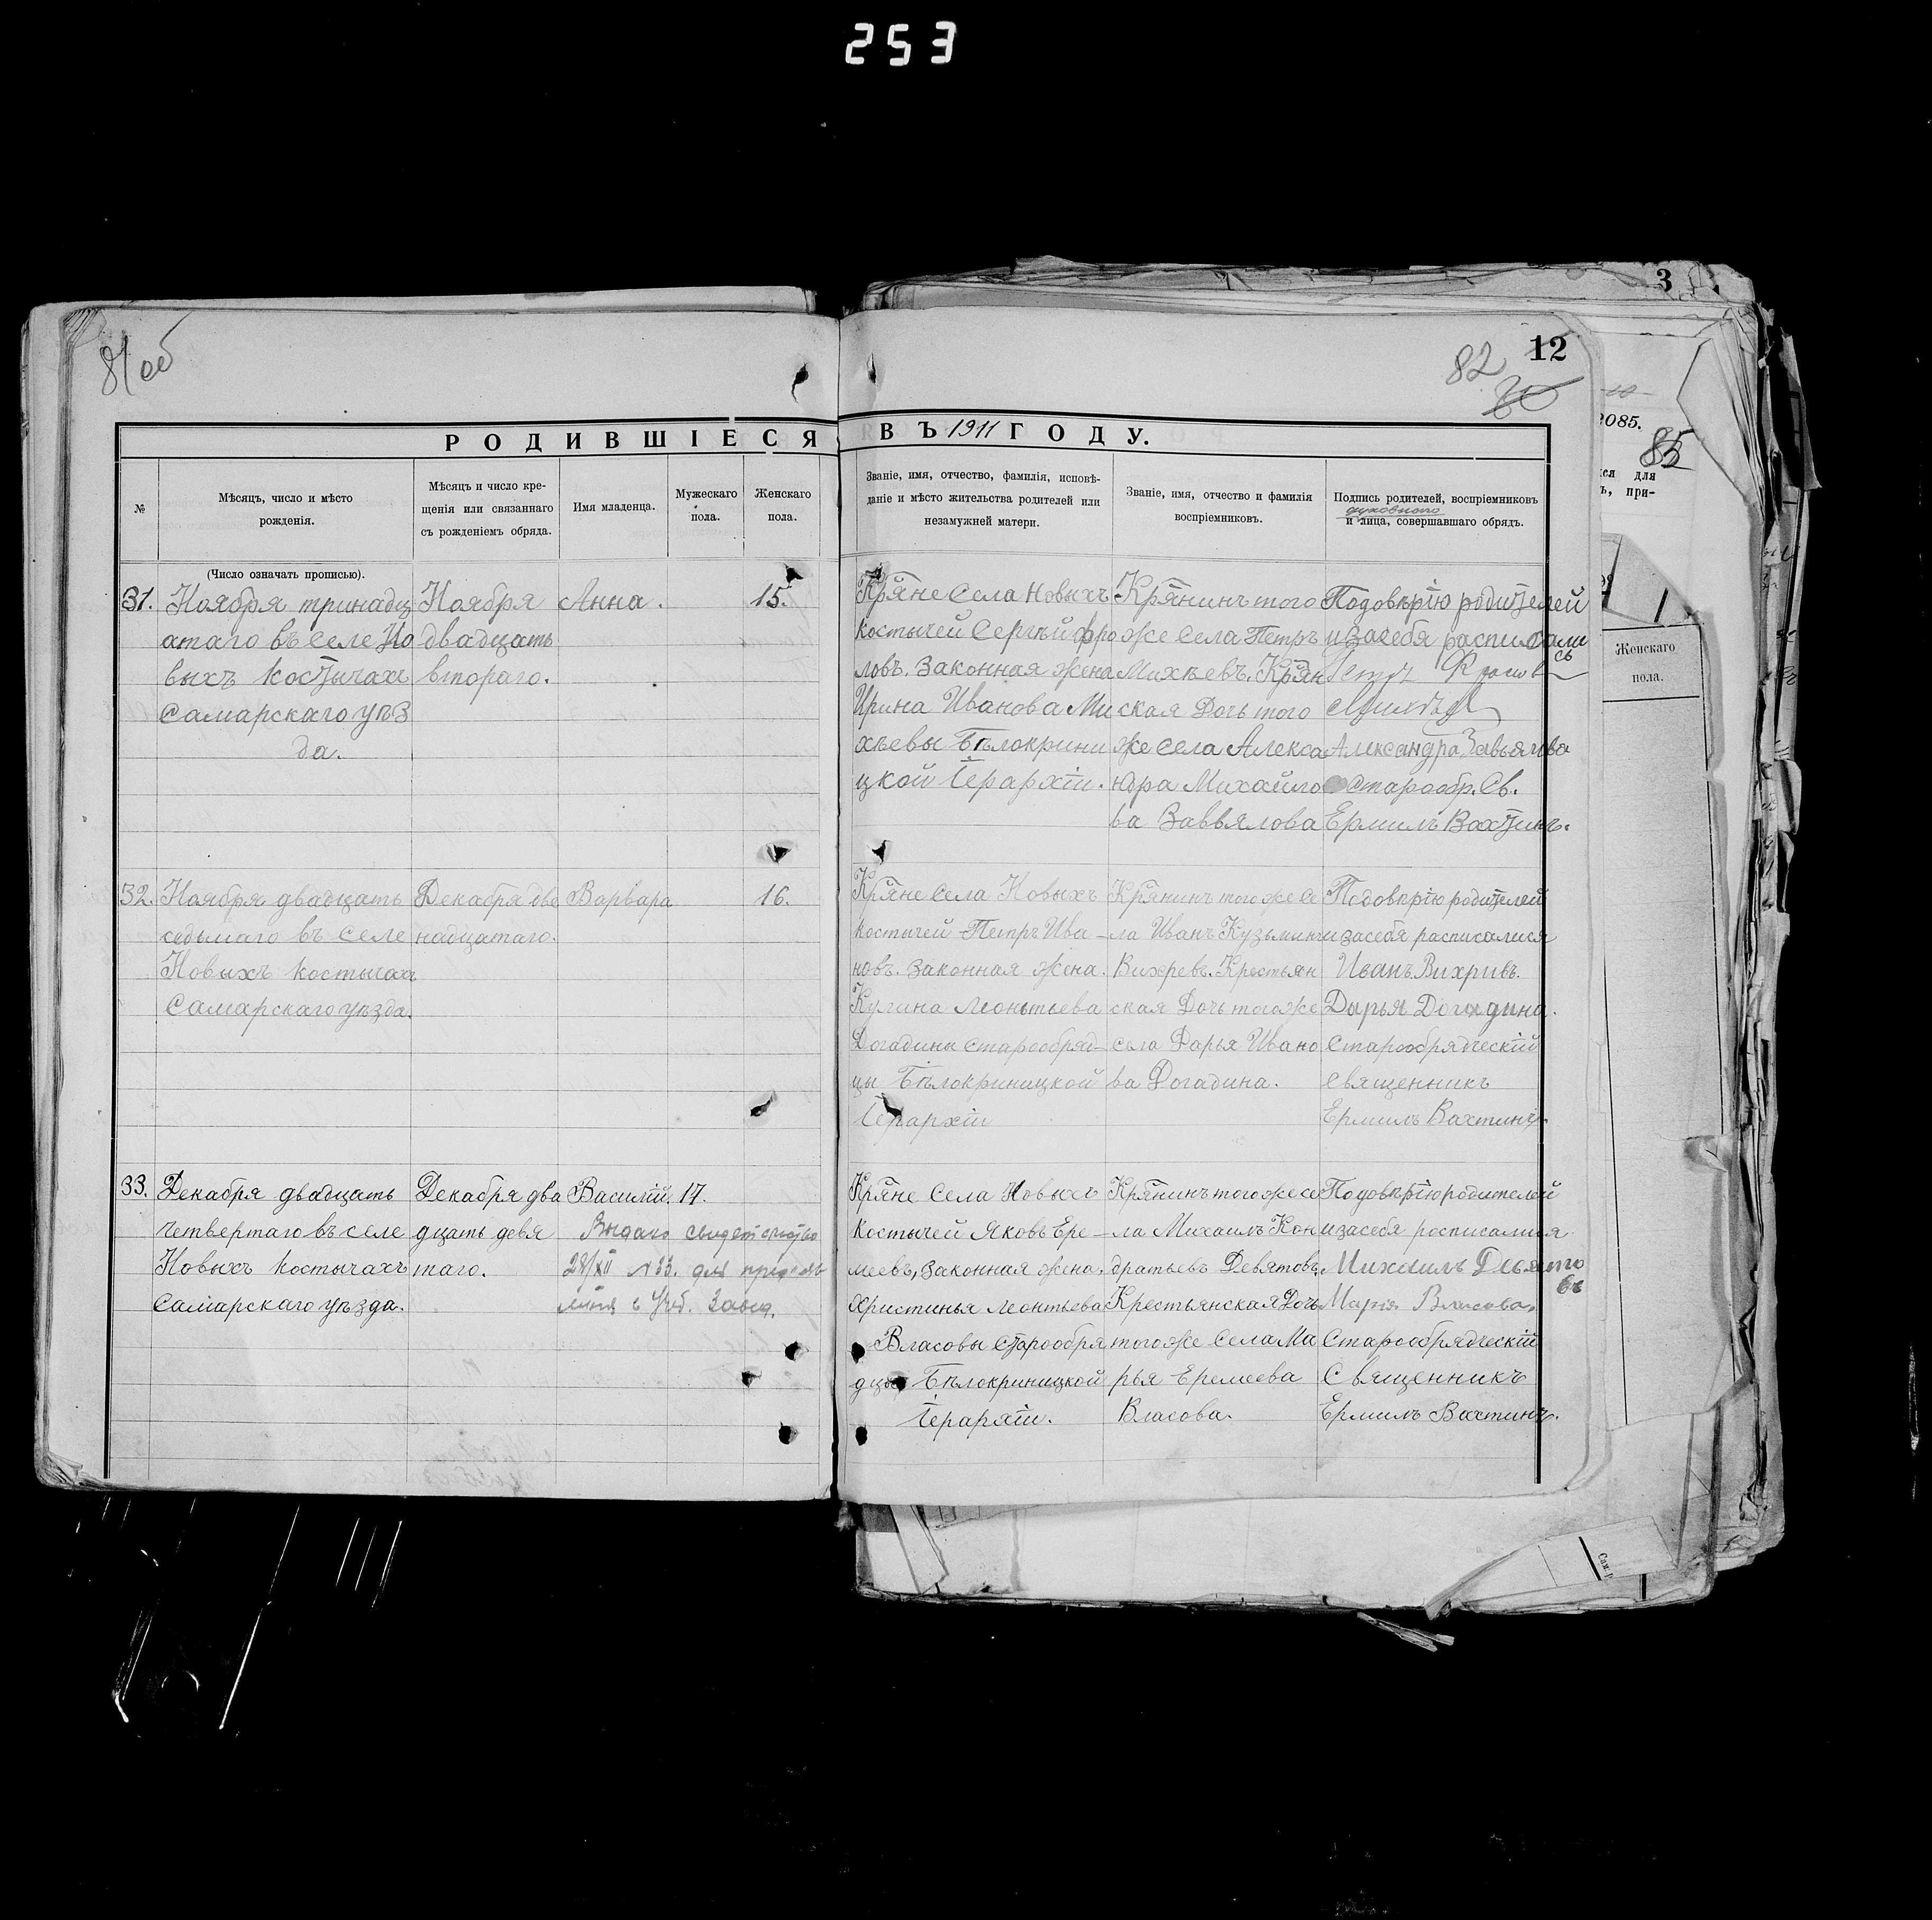 253
3
81 об
82
12
80
2085.
85
РОДИВШІЕСЯ ВЪ 1911 ГОДУ.
№
Мѣсяцъ, число и мѣсто
рожденія.
(Число означать прописью).
Мѣсяцъ и число кре-
щенія или связаннаго
съ рожденіемъ обряда.
Имя младенца.
Мужескаго
пола.
Женскаго
пола.
Званіе, имя, отчество, фамилія, исповѣ-
даніе и мѣсто жительства родителей или
незамужней матери.
Званіе, имя, отчество и фамилія
воспріемниковъ.
Подпись родителей, воспріемниковъ
духовнаго
и лица, совершавшаго обрядъ.
31.
Ноября тринадц
атаго въ селе Но
выхъ Костычахъ
Самарскаго уѣз
да.
Ноября
двадцать
втораго.
Анна.
15.
Кряне села Новыхъ
Костычей Сергѣй Фро
ловъ. Законная жена
Ирина Иванова Ми
хѣевы Бѣлокрини
цкой Іерархіи.
Крянинъ того
же села Петръ
Михѣевъ. Крян
ская Дочь того
же села Алекса
ндра Михайло
ва Заввялова
Подовѣрію родителей
и засебя расписали
сь
Александра Завьялова
Старообр. Св.
Ермилъ Вахтинъ.
32.
Ноября двадцать
седьмаго въ селе
Новыхъ Костычах
Самарскаго уѣзда.
Декабря две
надцатаго.
Варвара
16.
Кряне села Новыхъ
Костычей Петръ Ива-
новъ. Законная жена.
Кулина Леонтьева
Догадины старообряд-
цы Бѣлокриницкой
Іерархіи
Крянинъ того же се
ла Иванъ Кузьминъ
Вихревъ. Крестьян
ская Дочь того же
села Дарья Ивано
ва Догадина.
Подовѣрію родителей
и засебя расписалися
Иванъ Вихривъ.
Дарья Догадина.
Старообрядческій
священникъ
Ермилъ Вахтинъ.
33.
Декабря двадцать
четвертаго въ селе
Новыхъ Костычахъ
Самарскаго уѣзда.
Декабря два
дцать девя
таго.
Василій.
17.
Выдано свидетельство
28/XII №33. для
Учеб. Завед.
Кряне села Новыхъ
Костычей Яковъ Ере-
меевъ, Законная жена.
Христинья Леонтьева
Власовы старообря
дцы Бѣлокриницкой
Іерархіи.
Крянинъ того же се
ла Михаилъ Кон
дратьевъ Девятовъ.
Крестьянская Дочь
того же села Ма
рья Еремеева
Власова.
Подовѣрію родителей
и засебя росписалися
Михаилъ Девято
въ
Марія Власова.
Старообрядческій
Священникъ
Ермилъ Вахтинъ.
Женскаго
пола.